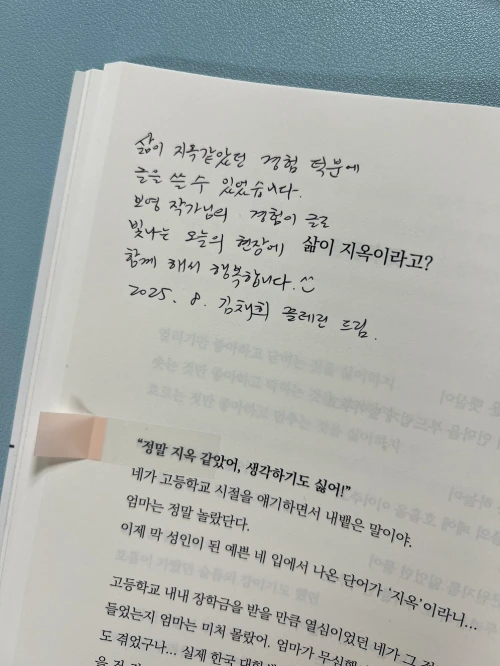 삶이 지옥같았던 경험 덕분에
글을 쓸 수 있었습니다.
보영 작가님의 경험이 글로
빛나는 오늘의 현장에 삶이 지옥이라고?
함께 해서 행복합니다.^^
2025. 8. 김채희 플레린 드림.
“정말 지옥 같았어, 생각하기도 싫어!”
네가 고등학교 시절을 얘기하면서 내뱉은 말이야.
엄마는 정말 놀랐단다.
이제 막 성인이 된 예쁜 네 입에서 나온 단어가 ‘지옥’이라니...
고등학교 내내 장학금을 받을 만큼 열심이었던 네가 그
들었는지 엄마는 미처 몰랐어. 엄마가 무심했
도 겪었구나... 실제 한국 대학